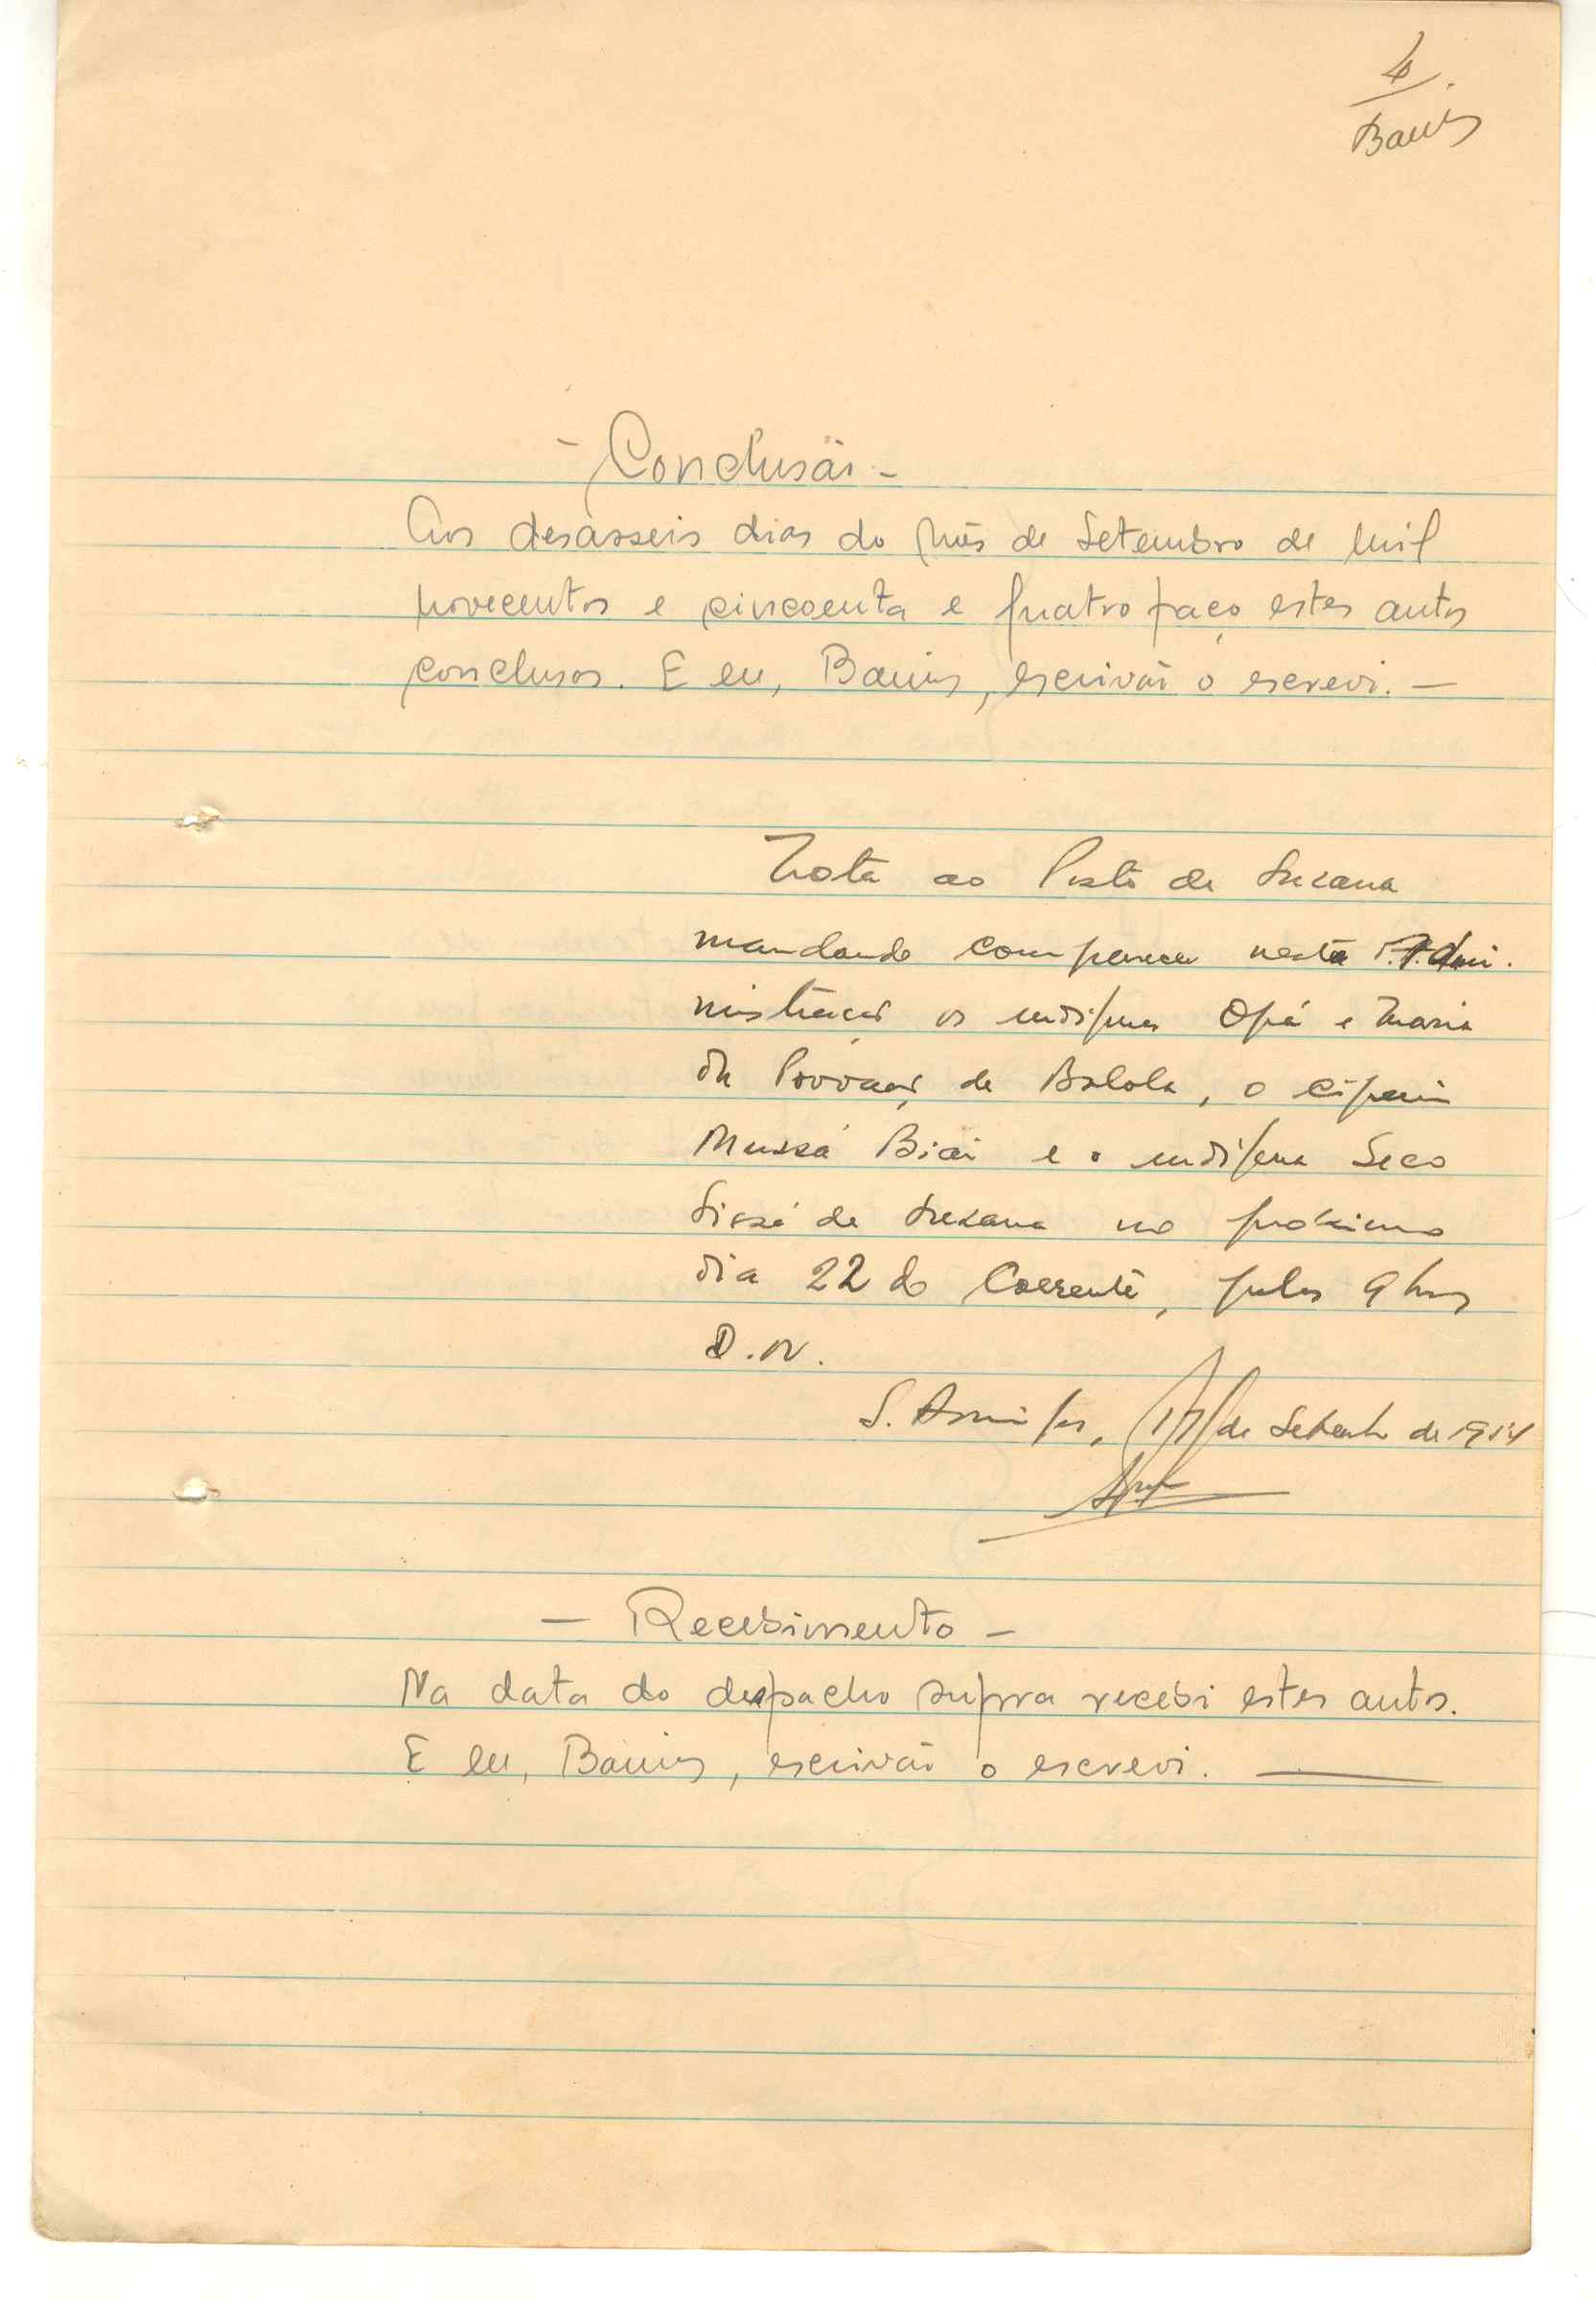 4
- Conclusão -
Aos desasseis dias do mês de Setembro de mil
novecentos e cincoenta e quatro faço estes autos
conclusos. E eu, , escrivão o escrevi. —
Nota ao Posto de Suzana
mandando comparecer nesta Admi-
nistração os indígenas Opá e Maria
da Povoação de Bolola, o cipaio
Mussá Biai e o indígena Seco
Sissé de Suzana no próximo
dia 22 do Corrente, pelas 9 horas
D. N.
S. Domingos, 17 de Setembro de 1954
- Recebimento -
Na data do despacho supra recebi estes autos.
E eu, , escrivão o escrevi. —